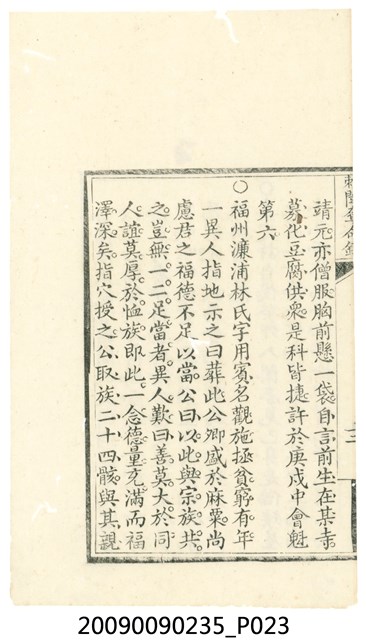 靖元亦僧服胸前懸一袋自言前生在某寺
募化豆腐供衆是科皆捷許於庚戌中會魁
第六
○福州濂浦林氏字用賓名觀施拯貧窮有年
一異人指地示之曰葬此公卿盛於麻粟尚
慮君之福德不足以當公曰以此與宗族共
之豈無一二足當者異人歎曰善莫大於同
人誼莫厚於恤族即此一念德量充滿而福
澤深矣指穴授之公取族二十四骸與其親
20090090235_P023